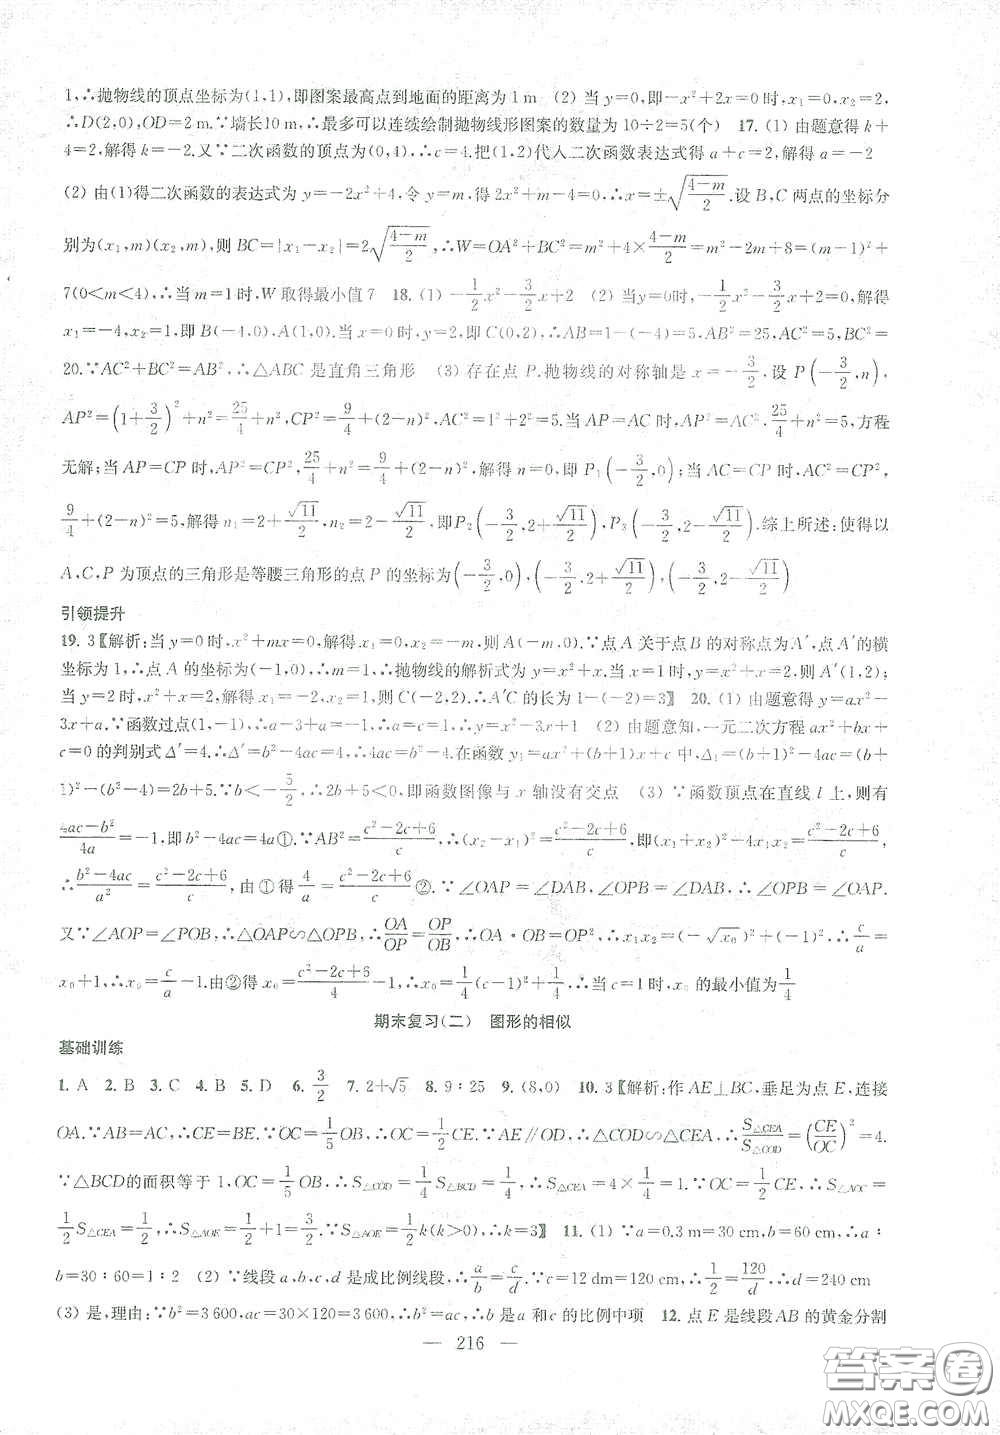 1,∴抛物线的顶点坐标为(1,1),即图案最高点到地面的距离为1 m (2) 当 y=0,即-x²+2x=0时,x₁=0,x₂=2,
∴D(2,0),OD=2 m.∵墙长10 m,∴最多可以连续绘制抛物线形图案的数量为10÷2=5(个) 17. (1) 由题意得 k+
4=2,解得 k=-2.又∵二次函数的顶点为(0,4),∴c=4.把(1,2)代入二次函数表达式得 a+c=2,解得 a=-2
(2) 由(1)得二次函数的表达式为 y=-2x²+4,令 y=m,得 2x²+m-4=0,∴x=±√((4-m)/2).设 B,C 两点的坐标分
别为(x₁,m)(x₂,m),则 BC=|x₁-x₂|=2√((4-m)/2),∴W=OA²+BC²=m²+4×(4-m)/2=m²-2m+8=(m-1)²+
7(0<m<4),∴当 m=1时,W 取得最小值7 18. (1) -1/2x²-3/2x+2 (2) 当y=0时,-1/2x²-3/2x+2=0,解得
x₁=-4,x₂=1,即 B(-4,0),A(1,0).当 x=0时,y=2,即C(0,2),∴AB=1-(-4)=5,AB²=25,AC²=5,BC²=
20.∵AC²+BC²=AB²,∴△ABC 是直角三角形 (3) 存在点 P.抛物线的对称轴是 x=-3/2.设 P(-3/2,n),
AP²=(1+3/2)²+n²=25/4+n²,CP²=9/4+(2-n)²,AC²=1²+2²=5.当 AP=AC 时,AP²=AC²,25/4+n²=5,方程
无解;当 AP=CP 时,AP²=CP²,25/4+n²=9/4+(2-n)²,解得 n=0,即 P₁(-3/2,0);当 AC=CP 时,AC²=CP²,
9/4+(2-n)²=5,解得 n₁=2+√11/2,n₂=2-√11/2,即P₂(-3/2,2+√11/2),P₃(-3/2,2-√11/2).综上所述:使得以
A,C,P 为顶点的三角形是等腰三角形的点 P 的坐标为(-3/2,0),(-3/2,2+√11/2),(-3/2,2-√11/2)
引领提升
19. 3〖解析:当 y=0时,x²+mx=0,解得 x₁=0,x₂=-m,则 A(-m,0).∵点 A 关于点B 的对称点为A′,点 A′的横
坐标为1,∴点 A 的坐标为(-1,0),∴m=1,∴抛物线的解析式为 y=x²+x.当 x=1时,y=x²+x=2,则 A′(1,2);
当 y=2时,x²+x=2,解得 x₁=-2,x₂=1,则 C(-2,2).∴A′C 的长为1-(-2)=3〗 20. (1) 由题意得 y=ax²-
3x+a.∵函数过点(1,-1),∴a-3+a=-1,∴a=c=1,∴y=x²-3x+1 (2) 由题意知,一元二次方程 ax²+bx+
c=0的判别式 Δ′=4.∴Δ′=b²-4ac=4,∴4ac=b²-4.在函数 y₁=ax²+(b+1)x+c 中,Δ₁=(b+1)²-4ac=(b+
1)²-(b²-4)=2b+5.∵b<-5/2,∴2b+5<0,即函数图像与 x 轴没有交点 (3) ∵函数顶点在直线 l 上,则有
(4ac-b²)/4a=-1,即 b²-4ac=4a①.∵AB²=(c²-2c+6)/c,∴(x₂-x₁)²=(c²-2c+6)/c,即(x₁+x₂)²-4x₁x₂=(c²-2c+6)/c,
∴(b²-4ac)/a²=(c²-2c+6)/c,由①得4/a=(c²-2c+6)/c②.∵∠OAP=∠DAB,∠OPB=∠DAB,∴∠OPB=∠OAP.
又∵∠AOP=∠POB,∴△OAP∽△OPB,∴OA/OP=OP/OB,∴OA·OB=OP²,∴x₁x₂=(-√x₀)²+(x₀+1)²,∴c/a=
x₀+1,∴x₀=c/a-1.由②得 x₀=(c²-2c+6)/4-1,∴x₀=1/4(c-1)²+1/4,∴当 c=1时,x₀的最小值为1/4
期末复习(二) 图形的相似
基础训练
1. A 2. B 3. C 4. B 5. D 6. 3/2 7. 2+√5 8. 9∶25 9. (8,0) 10. 3〖解析:作 AE⊥BC,垂足为点 E,连接
OA.∵AB=AC,∴CE=BE.∵OC=1/5OB,∴OC=1/2CE.∵AE∥OD,∴△COD∽△CEA,∴S△CEA/S△COD=(CE/OC)²=4.
∵△BCD的面积等于1,OC=1/5OB,∴S△COD=1/4S△BCD=1/4,∴S△CEA=4×1/4=1.∵OC=1/2CE,∴S△AOC=
1/2S△CEA=1/2,∴S△AOE=1/2+1=3/2.∵S△AOE=1/2k(k>0),∴k=3〗 11. (1) ∵a=0.3 m=30 cm,b=60 cm,∴a∶
b=30∶60=1∶2 (2) ∵线段 a,b,c,d 是成比例线段,∴a/b=c/d.∵c=12 dm=120 cm,∴1/2=120/d,∴d=240 cm
(3) 是,理由:∵b²=3 600,ac=30×120=3 600,∴b²=ac,∴b 是 a 和 c 的比例中项 12. 点 E 是线段 AB 的黄金分割
— 216 —
答案圈
MXQE.COM